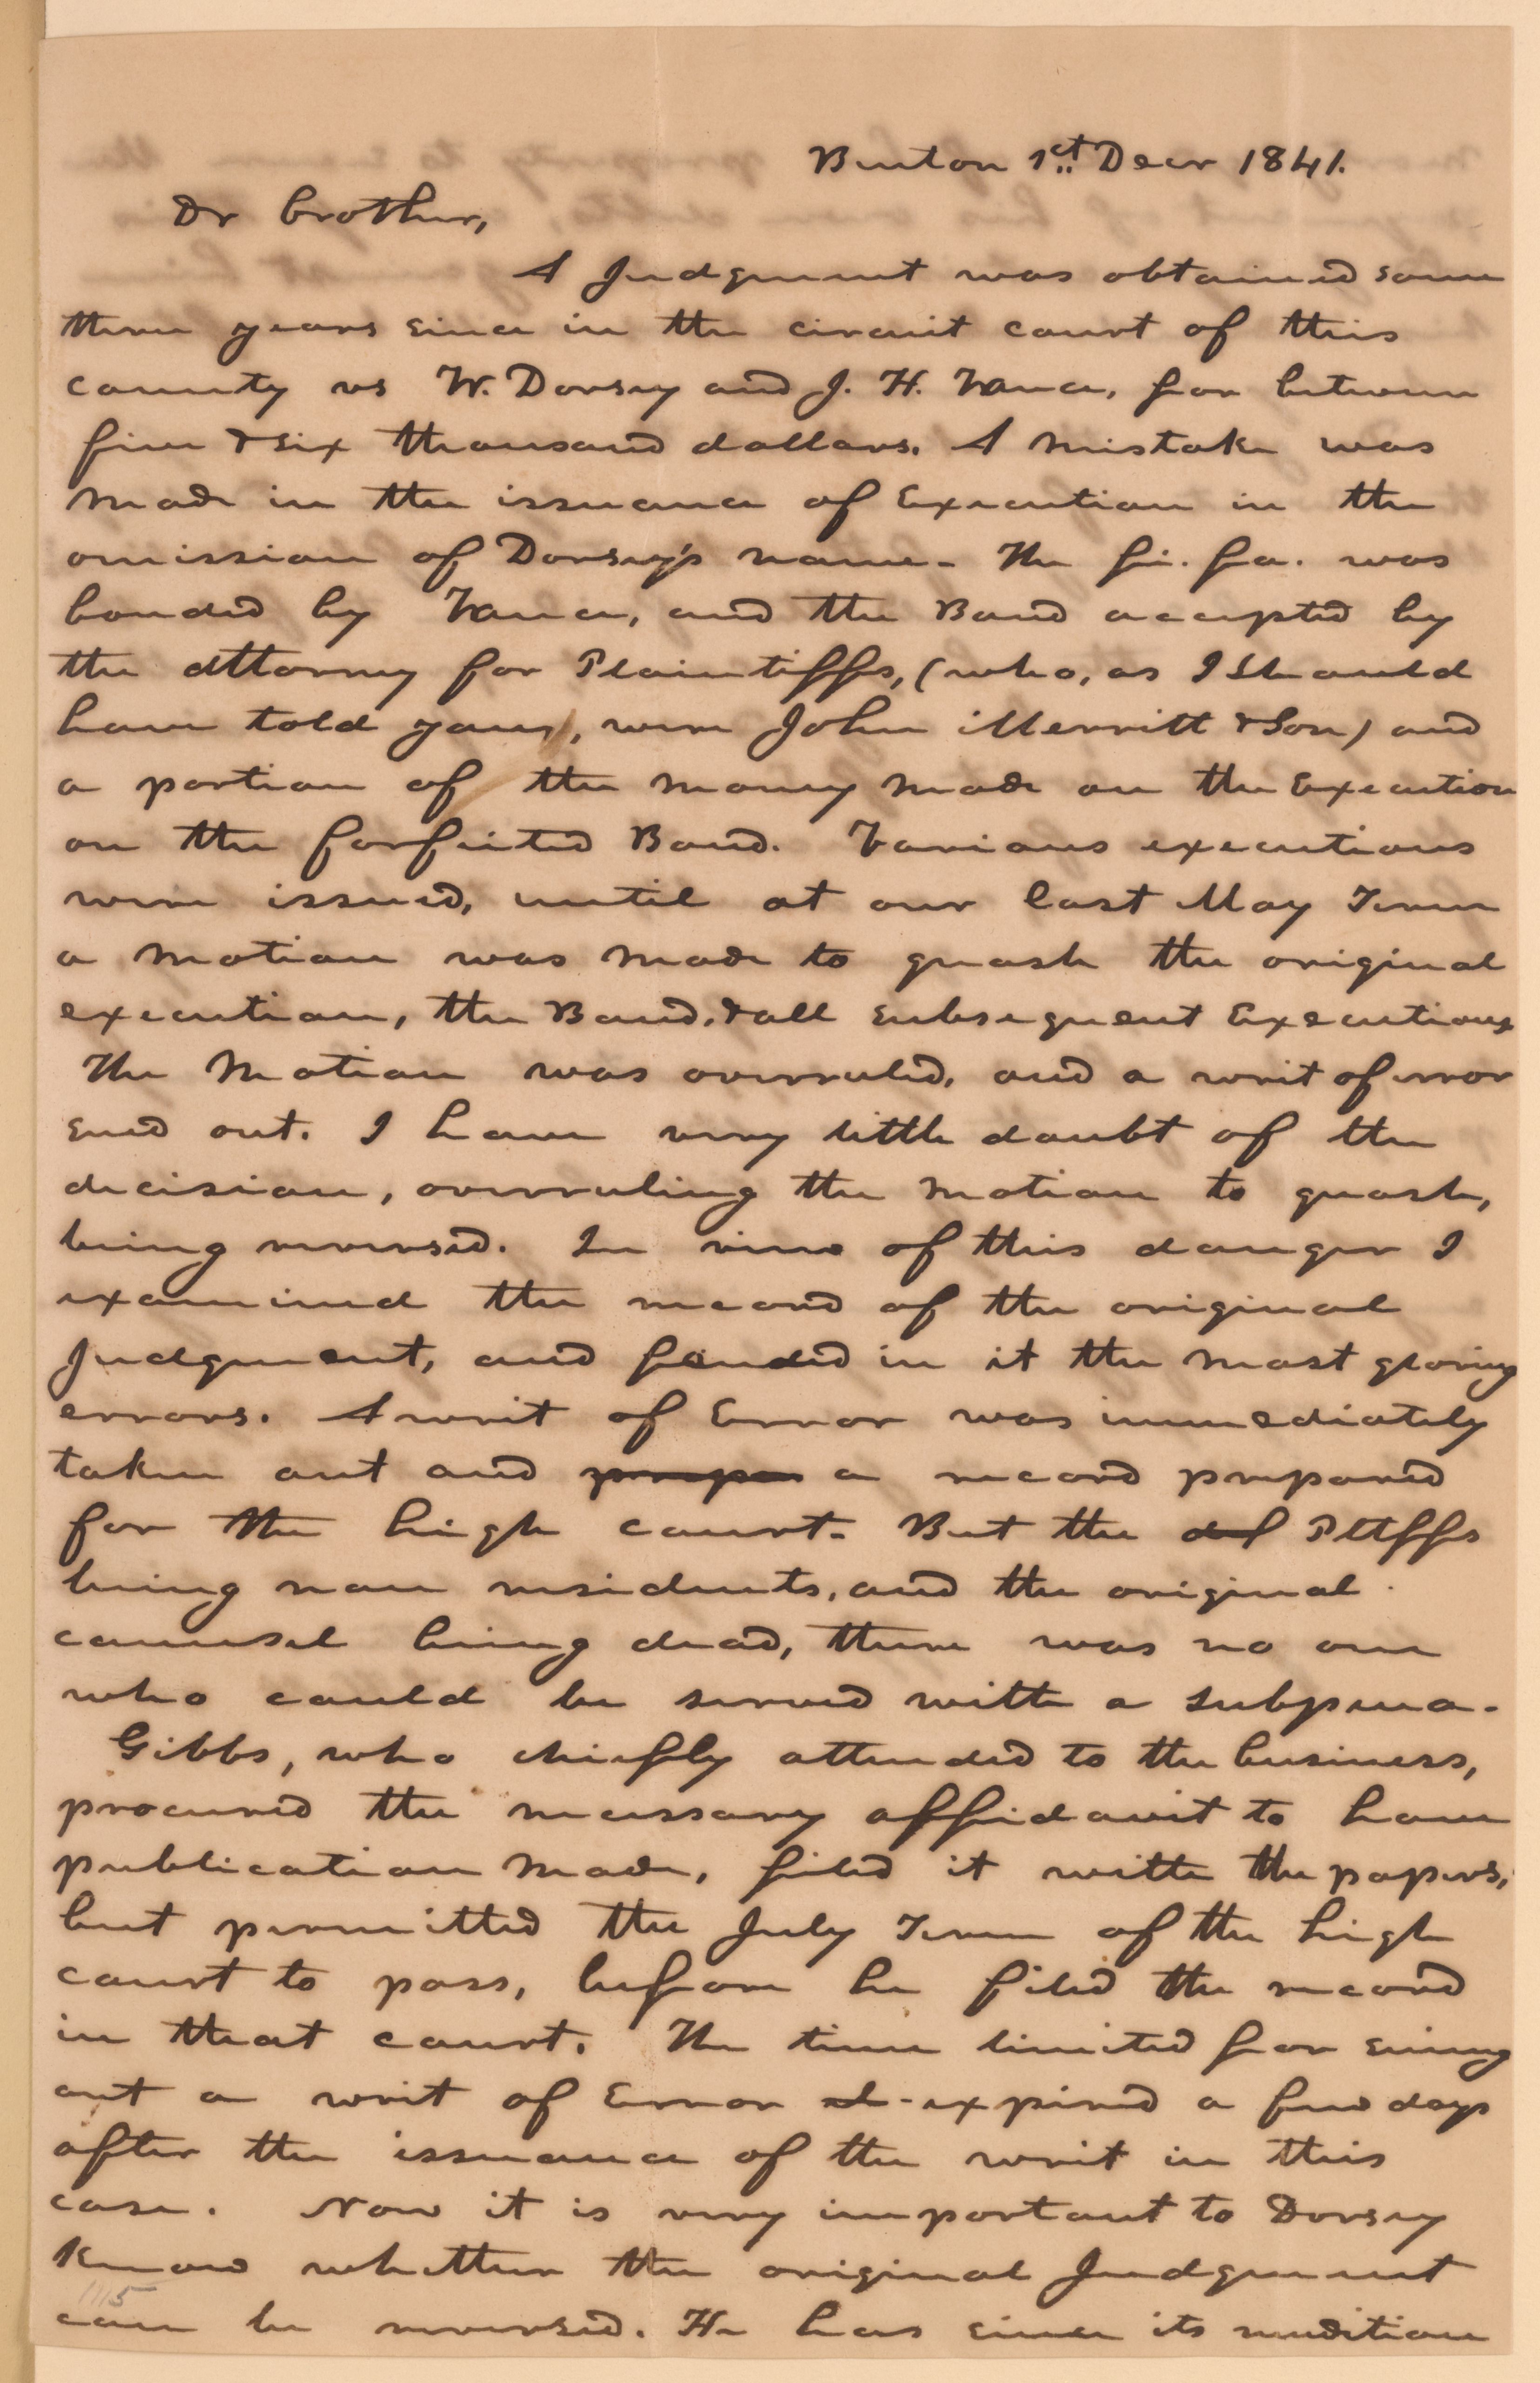 Benton 1st Decr 1841.
Dr brother,
A Judgment was obtained some
three years since in the circuit court of this
county vs W. Dorsey and J. H. Vance, for between
five & six thousand dollars. A mistake was
made in the issuance of Execution in the
omission of Dorsey's name - The fi. fa. was
bonded by Vance, and the Bond accepted by
the attorney for Plaintiffs, (who, as I should
have told you, were John Merritt & Son) and
a portion of the money made on the Execution
on the forfeited Bond. Various executions
were issued, until at our last May Term
a motion was made to quash the original
execution, the Bond, & all subsequent Executions
The motion was overruled, and a writ of error
sued out. I have very little doubt of the
decision, overruling the motion to quash,
being reversed. In view of this danger I
examined the record of the original
Judgment, and found in it the most glaring
errors. A writ of Error was immediately
taken out and prepar a record prepared
for the high court. But the def Pltffs
being non residents, and the original
counsel being dead, there was no one
who could be served with a subpena.
Gibbs, who chiefly attended to the business,
procured the necessary affidavit to have
publication made, filed it with the papers,
but permitted the July Term of the high
court to pass, before he filed the record
in that court. The time limited for suing
out a writ of Error expired a few days
after the issuance of the writ in this
case. Now it is very important to Dorsey
know whether the original Judgment
can be reversed. He has since its rendition
115